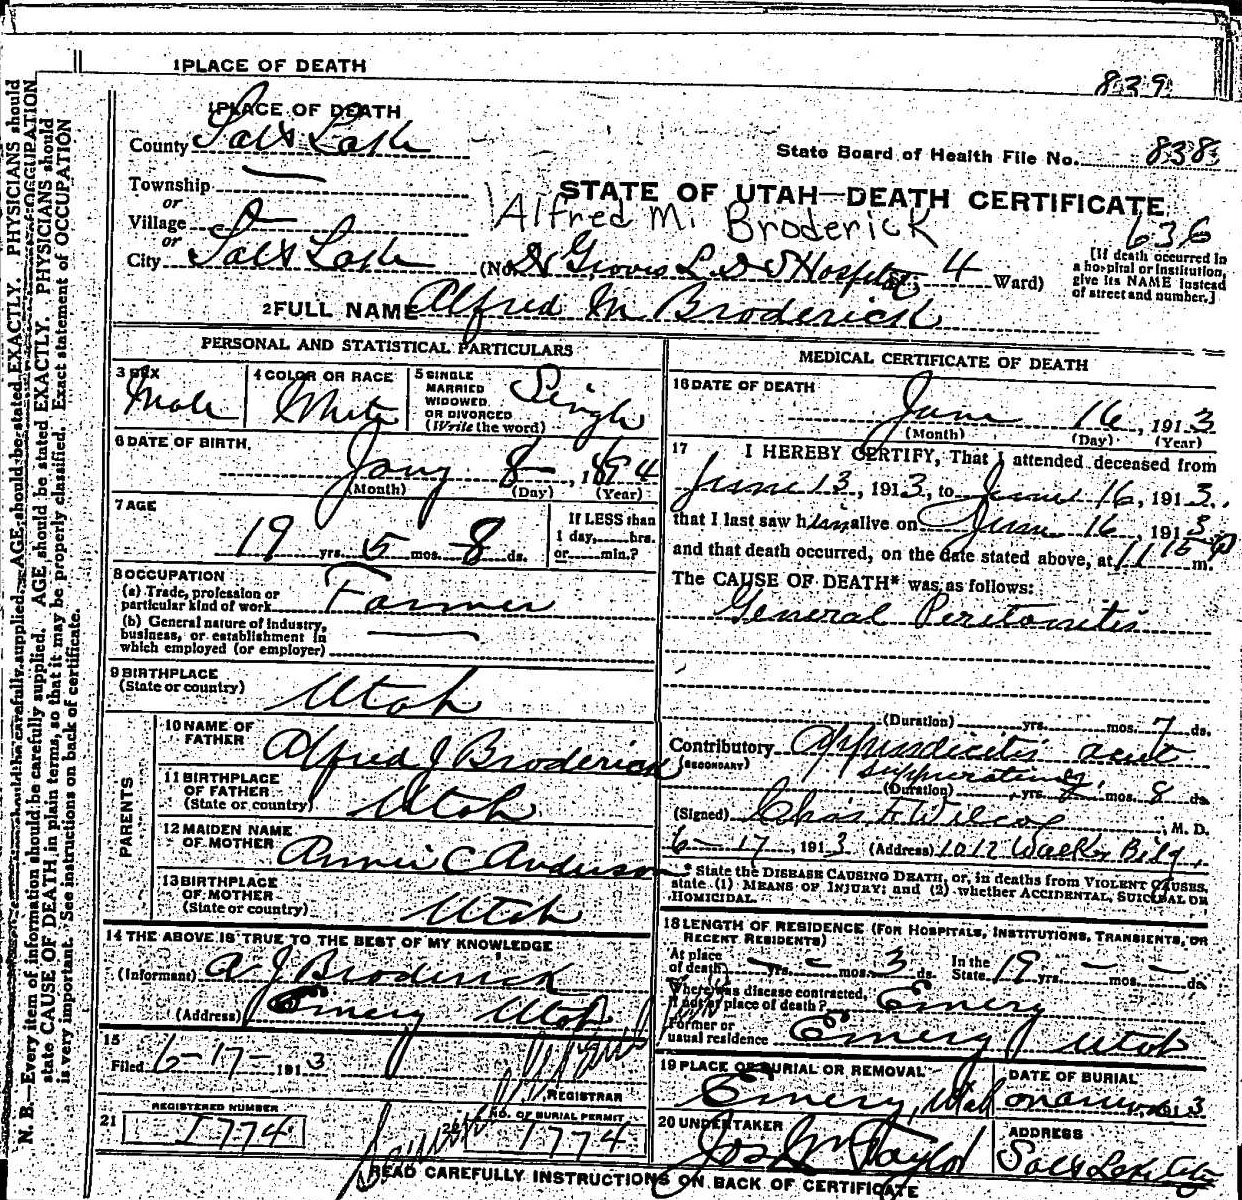 1 PLACE OF DEATH
839
1 PLACE OF DEATH
County Salt Lake
State Board of Health File No. 838
Township —
or
STATE OF UTAH—DEATH CERTIFICATE
Village
or
Alfred M. Broderick
636
City Salt Lake (No. Dr Groves L.D.S Hospital; 4 Ward)
[If death occurred in
a hospital or institution,
give its NAME instead
of street and number.]
2 FULL NAME Alfred M Broderick
PERSONAL AND STATISTICAL PARTICULARS
3 SEX
Male
4 COLOR OR RACE
White
5 SINGLE
MARRIED
WIDOWED
OR DIVORCED
(Write the word)
Single
6 DATE OF BIRTH,
Jany 8 , 1894
(Month) (Day) (Year)
7 AGE
19 yrs. 5 mos. 8 ds.
If LESS than
1 day, hrs.
or min.?
8 OCCUPATION
(a) Trade, profession or
particular kind of work Farmer
(b) General nature of industry,
business, or establishment in
which employed (or employer) —
9 BIRTHPLACE
(State or country) Utah
PARENTS
10 NAME OF
FATHER Alfred J Broderick
11 BIRTHPLACE
OF FATHER
(State or country) Utah
12 MAIDEN NAME
OF MOTHER Annie C Anderson
13 BIRTHPLACE
OF MOTHER
(State or country) Utah
14 THE ABOVE IS TRUE TO THE BEST OF MY KNOWLEDGE
(Informant) A J Broderick
(Address) Emery Utah
15
Filed 6-17- 1913
REGISTRAR
21 REGISTERED NUMBER
1774
22 NO. OF BURIAL PERMIT
1774
MEDICAL CERTIFICATE OF DEATH
16 DATE OF DEATH
June 16 , 1913
(Month) (Day) (Year)
17 I HEREBY CERTIFY, That I attended deceased from
June 13, 1913, to June 16, 1913.
that I last saw him alive on June 16 1913
and that death occurred, on the date stated above, at 11 15 P m.
The CAUSE OF DEATH* was as follows:
General Peritonitis
(Duration) yrs. mos. 7 ds.
Contributory Appendicitis acut
(SECONDARY)
suppurating
(Duration) yrs. mos. 8 ds.
(Signed) Chas F Wilcox, M. D.
6-17, 1913 (Address) 1012 Walker Bldg.
* State the DISEASE CAUSING DEATH, or, in deaths from VIOLENT CAUSES,
state (1) MEANS OF INJURY; and (2) whether ACCIDENTAL, SUICIDAL OR
HOMICIDAL.
18 LENGTH OF RESIDENCE (FOR HOSPITALS, INSTITUTIONS, TRANSIENTS, OR
RECENT RESIDENTS)
At place
of death — yrs. — mos. 3 ds.
In the
State 19 yrs. — mos. — ds.
Where was disease contracted,
if not at place of death? Emery
Former or
usual residence Emery Utah
19 PLACE OF BURIAL OR REMOVAL
Emery, Utah
DATE OF BURIAL
20 UNDERTAKER
Jos Wm Taylor
ADDRESS
Salt Lake City
READ CAREFULLY INSTRUCTIONS ON BACK OF CERTIFICATE
N. B.—Every item of information should be carefully supplied. AGE should be stated EXACTLY. PHYSICIANS should
state CAUSE OF DEATH in plain terms, so that it may be properly classified. Exact statement of OCCUPATION
is very important. See instructions on back of certificate.